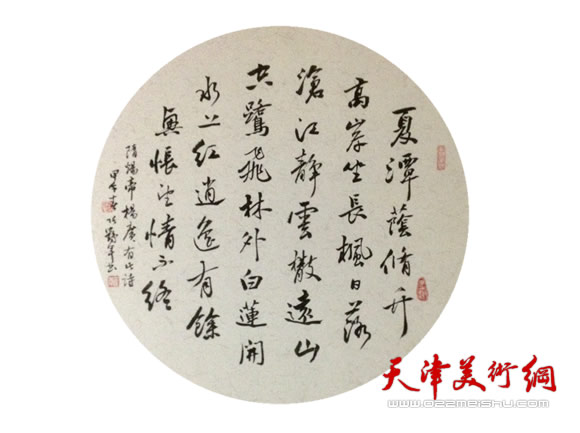 夏潭蔭脩竹
高岸坐長楓日落
滄江靜雲散遠山
空鷺飛林外白蓮開
水上紅逍遙有餘
興悵望情不終
隋煬帝楊廣有此詩
甲午春
天津美術網
www.022meishu.com